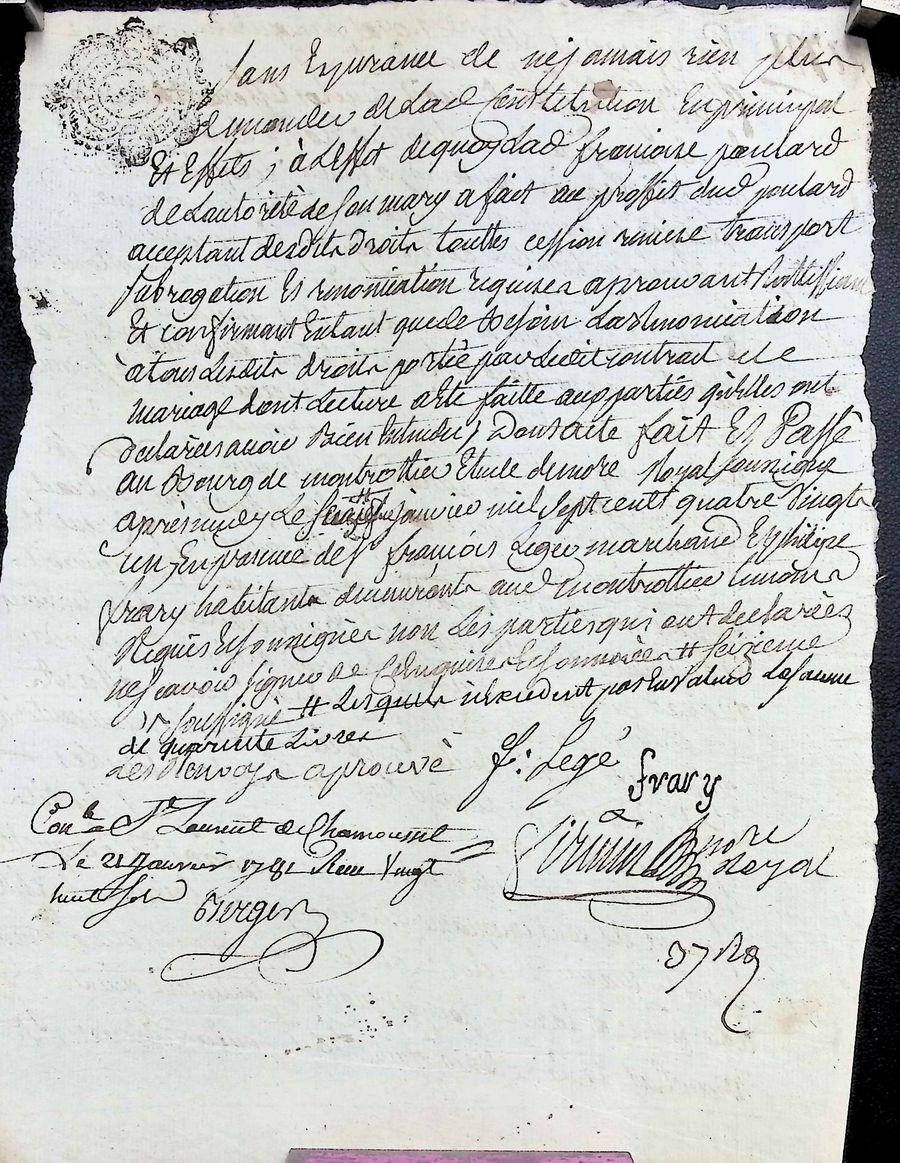 sans Esperance de ny jamais rien plus
demander de Lad Constitution En principal
Et Effets ; à L'effet de quoy Lad françoise poulard
de L'autorité de son mary a fait au proffit dud poulard
acceptant desdits droits touttes cession remise transport
subrogation Et renonciation requises aprouvant Rattiffiant
Et confirmant Entant que de Besoin La renonciation
à tous Lesdits droits portée par Ledit contrat de
mariage dont Lecture a Eté faitte aux parties qu'elles ont
declarées avoir Bien Entendu, Dont acte fait Et Passé
au Bourg de montrottier Etude du nore Royal soussigné
après midy Le janvier mil sept cent quatre vingt
un En presence de Sr françois Leger marchand Et philipe
frary habitants demeurants aud montrottier temoins
Requis Et soussignés non Les parties qui ont declarées
ne scavoir signer de Ce Enquises Et sommées # seizieme
soussigné # Lesquels n'excedent pas En valeur La somme
de quarante Livres
Les Renvoys aprouvé f: Legé
frary
Conlé a St Laurent de Chamousset
Le 21 Janvier 1781 Recu Vingt
huit sols
nore Royal
Berger